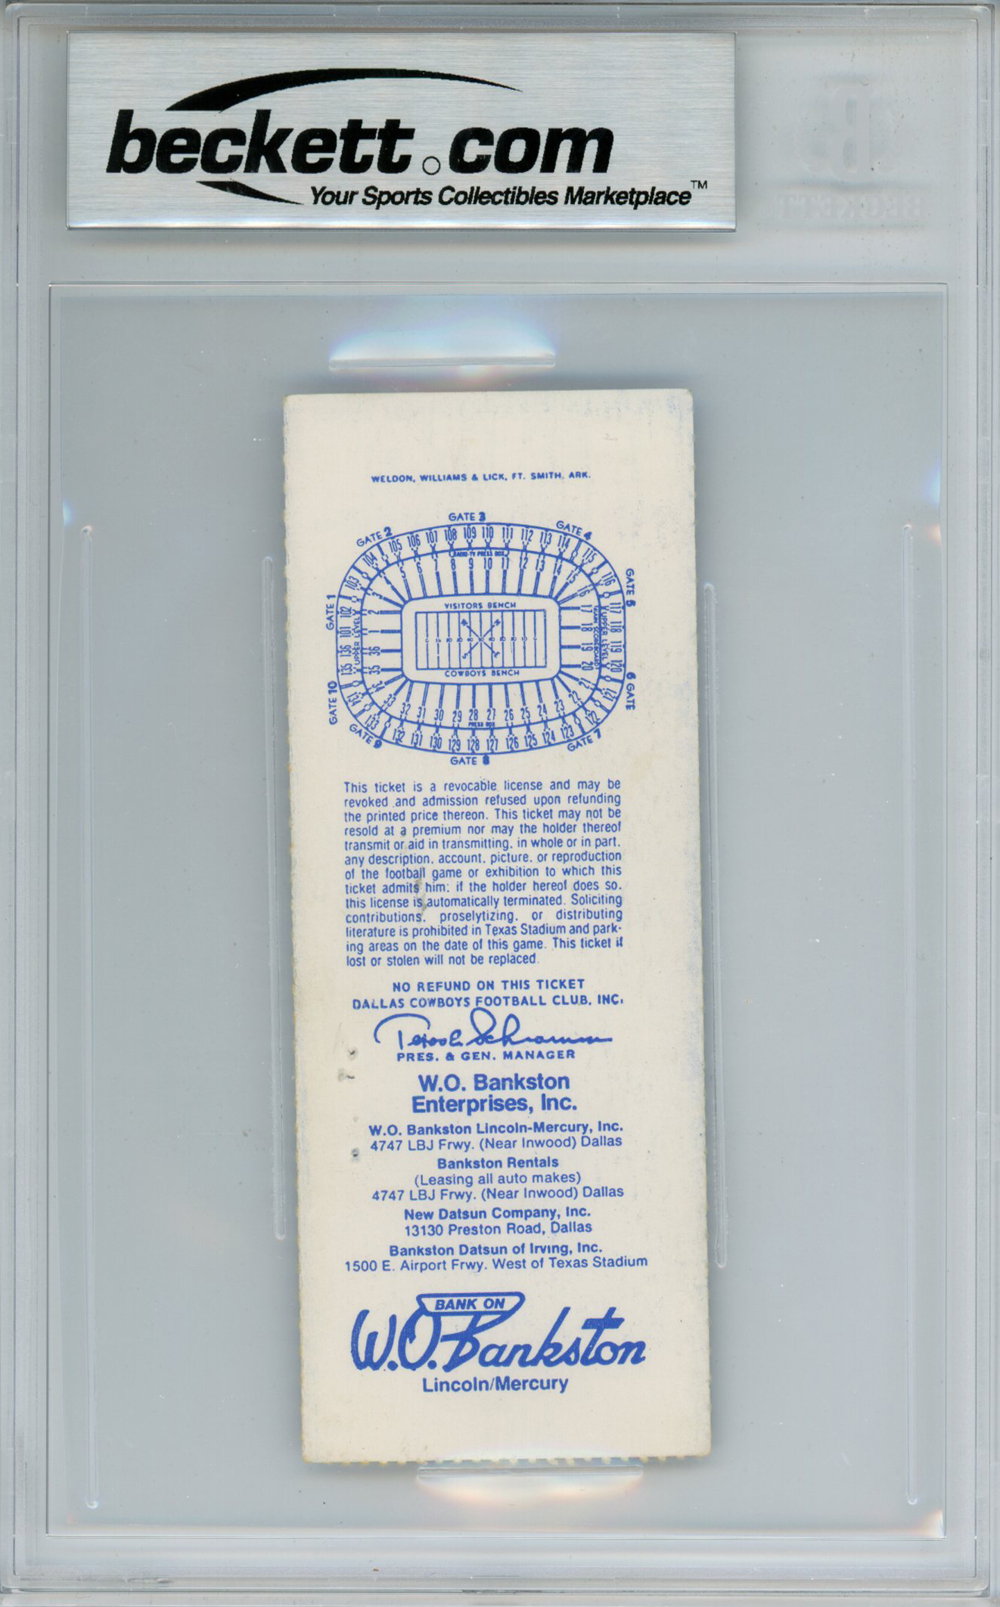 beckett.com
Your Sports Collectibles Marketplace™
BECKETT
WELDON, WILLIAMS & LICK, FT. SMITH, ARK.
GATE 3
GATE 2
GATE 4
105 106 107 108 109 110 111 112 113 114 115
104
116
103
RADIO-TV PRESS BOX
8 9 10 11 12 13
GATE 5
GATE 1
VISITORS BENCH
102
101
136
135
UPPER LEVEL
117
118
119
120
UPPER LEVEL
17
18
19
20
COWBOYS BENCH
GATE 10
6 GATE
31 30 29 28 27 26 25 24
PRESS BOX
132 131 130 129 128 127 126 125 124 123 122
GATE 9
GATE 7
GATE 8
This ticket is a revocable license and may be
revoked and admission refused upon refunding
the printed price thereon. This ticket may not be
resold at a premium nor may the holder thereof
transmit or aid in transmitting, in whole or in part,
any description, account, picture, or reproduction
of the football game or exhibition to which this
ticket admits him; if the holder hereof does so,
this license is automatically terminated. Soliciting
contributions, proselytizing, or distributing
literature is prohibited in Texas Stadium and park-
ing areas on the date of this game. This ticket if
lost or stolen will not be replaced.
NO REFUND ON THIS TICKET
DALLAS COWBOYS FOOTBALL CLUB, INC.
Texas E. Schramm
PRES. & GEN. MANAGER
W.O. Bankston
Enterprises, Inc.
W.O. Bankston Lincoln-Mercury, Inc.
4747 LBJ Frwy. (Near Inwood) Dallas
Bankston Rentals
(Leasing all auto makes)
4747 LBJ Frwy. (Near Inwood) Dallas
New Datsun Company, Inc.
13130 Preston Road, Dallas
Bankston Datsun of Irving, Inc.
1500 E. Airport Frwy. West of Texas Stadium
BANK ON
W.O. Bankston
Lincoln/Mercury